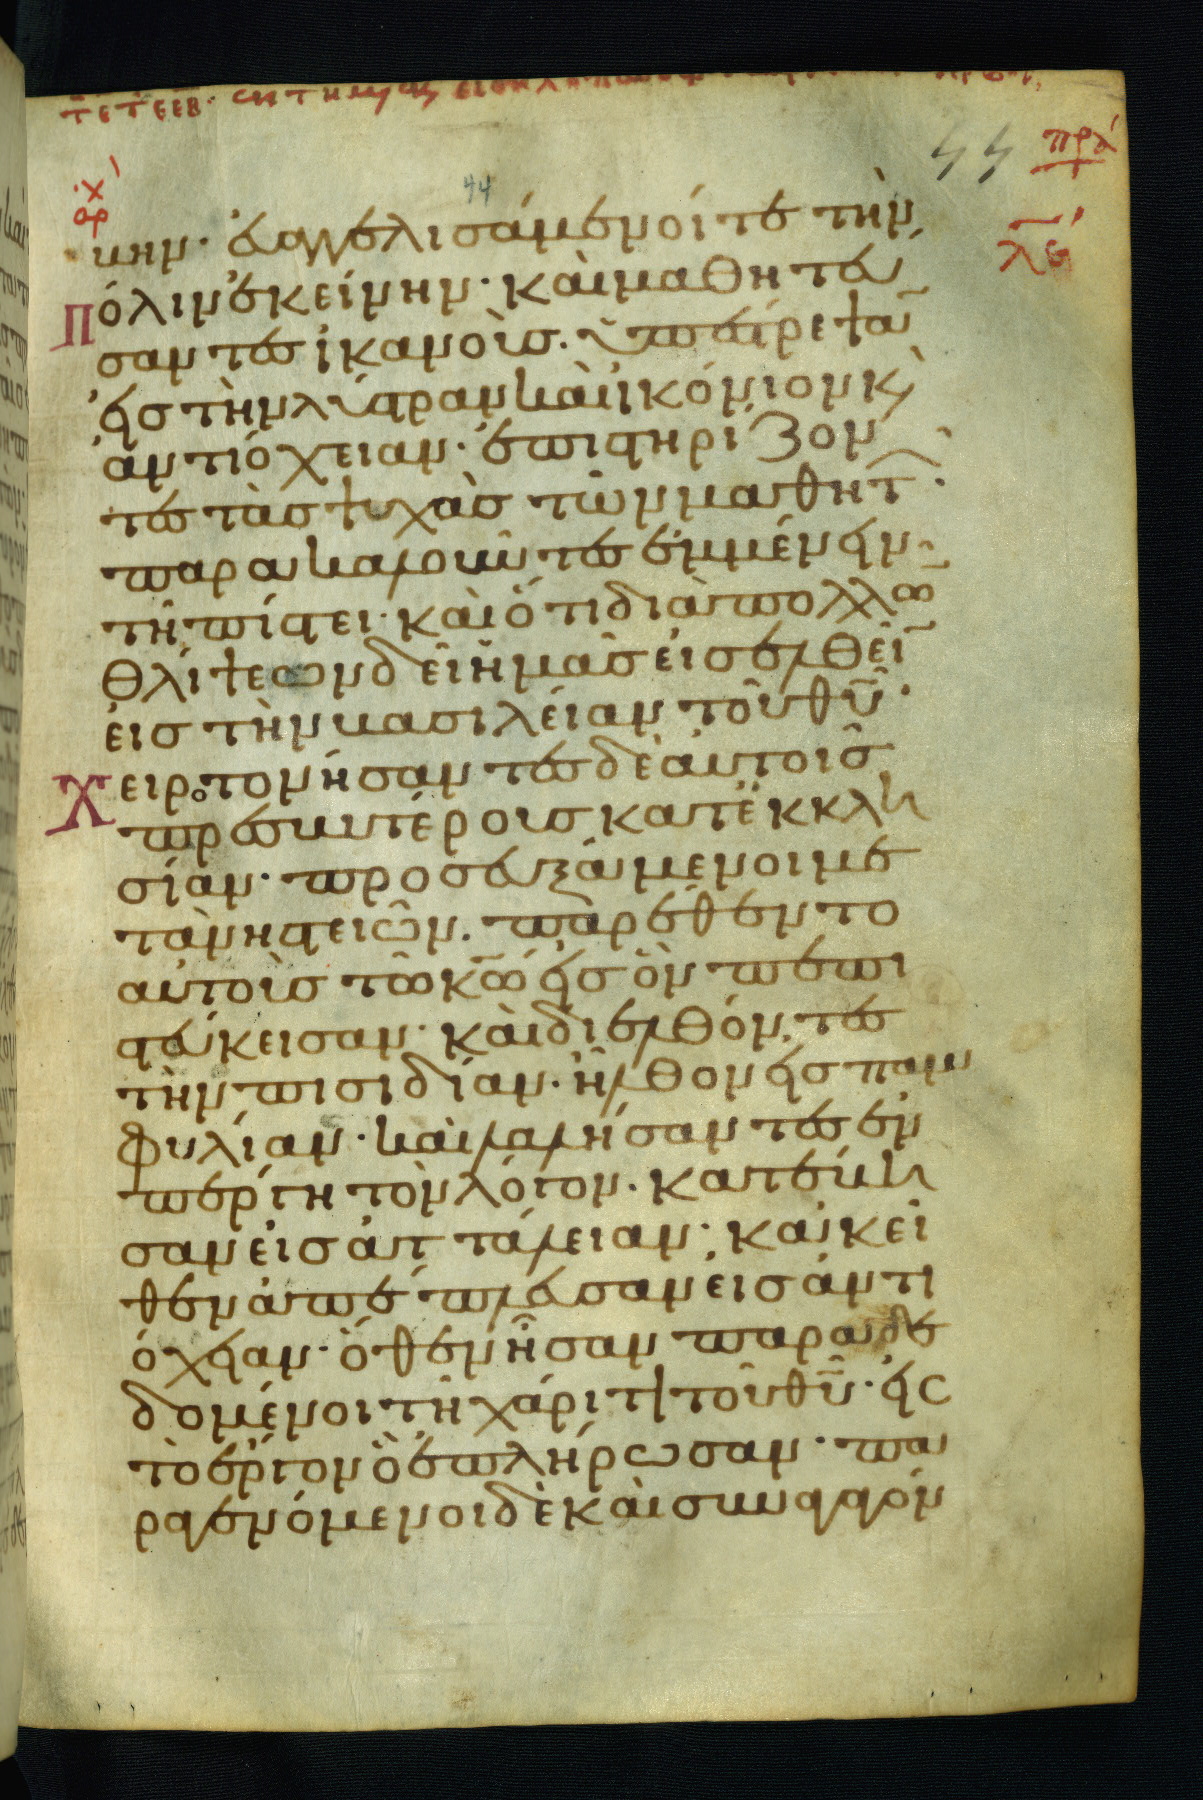 44
πρά
λε
αρχ
44
κην· ευαγγελισάμενοί τε τὴν
πόλιν ἐκείνην· καὶ μαθητεύ
σαντες ἱκανοὺς. ὑπέστρεψαν̅
εἰς τὴν λύστραν καὶ ἰκόνιον κ̀
ἀντιόχειαν· ἐπιστηρίζον
τες τὰς ψυχὰς τῶν μαθητ̂·
παρακαλοῦντες ἐμμένειν
τῆ πίστει· καὶ ὅτι διὰ πολλῶ̅
θλίψεων δεῖ ἡμᾶς εἰσελθεῖ̅
εἰς τὴν βασιλείαν τοῦ θ̅υ̅·
χειροτονήσαντες δὲ αὐτοῖς
πρεσβυτέρους κατ' ἐκκλη
σίαν· προσευξάμενοι με
τὰ νηστειῶν. παρέθεντο
αὐτοὺς τῶ κ̅ω̅ εἰς ὃν πεπι
στεύκεισαν· καὶ διελθόντες
τὴν πισιδίαν· ἦλθον εἰς παμ
φυλίαν· καὶ λαλήσαντες ἐν
πέργη τὸν λόγον. κατέβη
σαν εἰς ἀτταλειαν· κακεῖ
θεν ἀπέπλευσαν εἰς ἀντι
όχειαν· ὅθεν ἦσαν παραδε
δομένοι τῆ χάριτι τοῦ θ̅υ̅· εἰς
τὸ ἔργον ὃ ἐπλήρωσαν· πα
ραγενόμενοι δὲ καὶ συναγαγόν